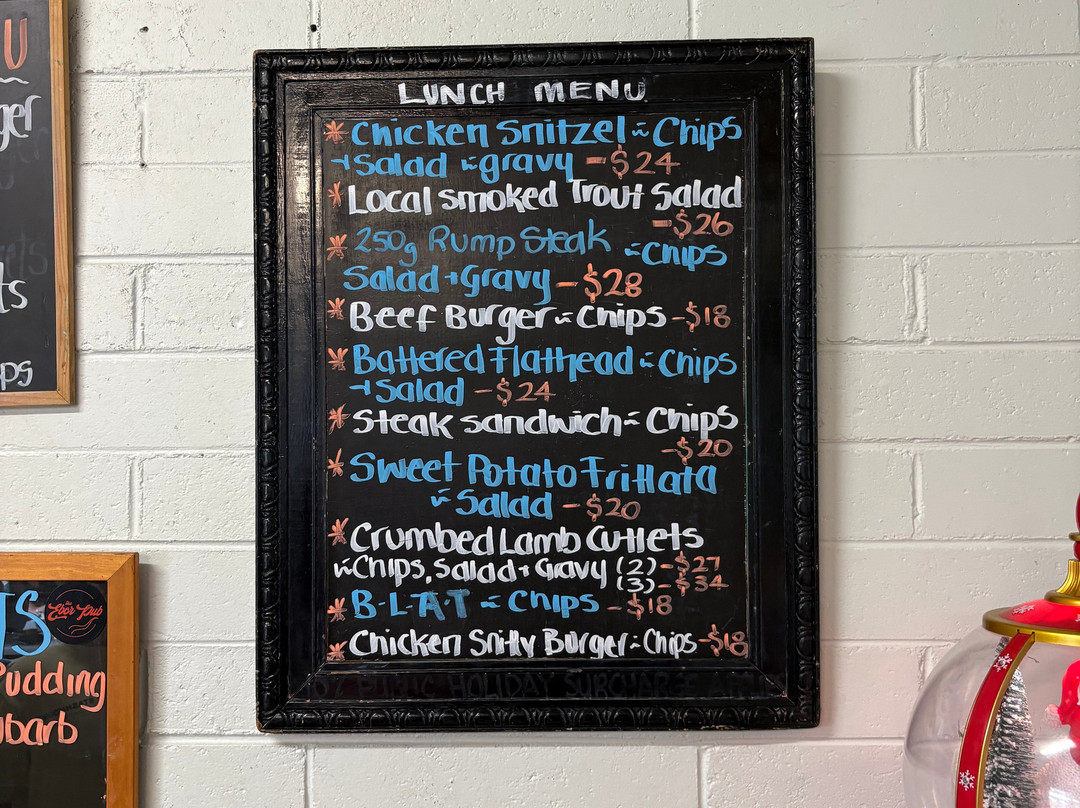 U
ger
ts
ps
LUNCH MENU
* Chicken Snitzel w Chips
+ Salad w gravy - $24
* Local smoked Trout Salad
- $26
* 250g Rump Steak w Chips
Salad + Gravy - $28
* Beef Burger w Chips - $18
* Battered Flathead w Chips
+ Salad - $24
* Steak Sandwich w Chips
- $20
* Sweet Potato Frittata
w Salad - $20
* Crumbed Lamb Cutlets
w Chips, Salad + Gravy (2) - $27
(3) - $34
* B-L-A-T w Chips - $18
* Chicken Snitty Burger w Chips - $18
PUBLIC HOLIDAY SURCHARGE
TS
Ebor Pub
Pudding
ubarb